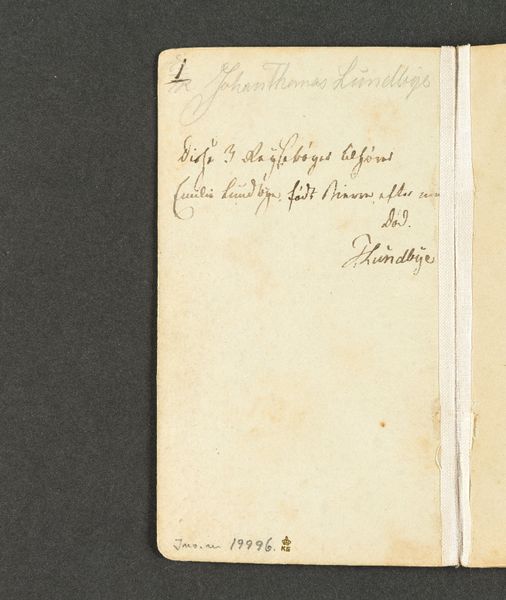 1
Johan Thomas Lundbye
Disse 3 Reysebøger tilhører
Emilie Lundbye, født Bierre, efter
Død.
Lundbye
Inv. nr 19996.